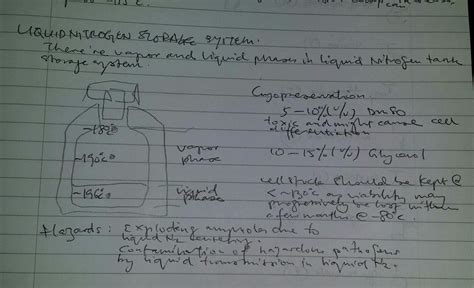 LIQUID NITROGEN STORAGE SYSTEM.
There're vapor and liquid phases in liquid Nitrogen tank
storage system.
Cryopreservation
5-10% (V/V) DMSO
toxic and might cause cell
differentiation
10-15% (V/V) Glycerol
cell stock should be kept @
< -130°C as viability may
progressively be lost within
a few months @ -80°C
~190°C
vapor
phase
~196°C
liquid
phase
Hazards: Exploding ampoules due to
liquid N2
Contamination of hazardous pathogens
by liquid transmission in liquid N2.